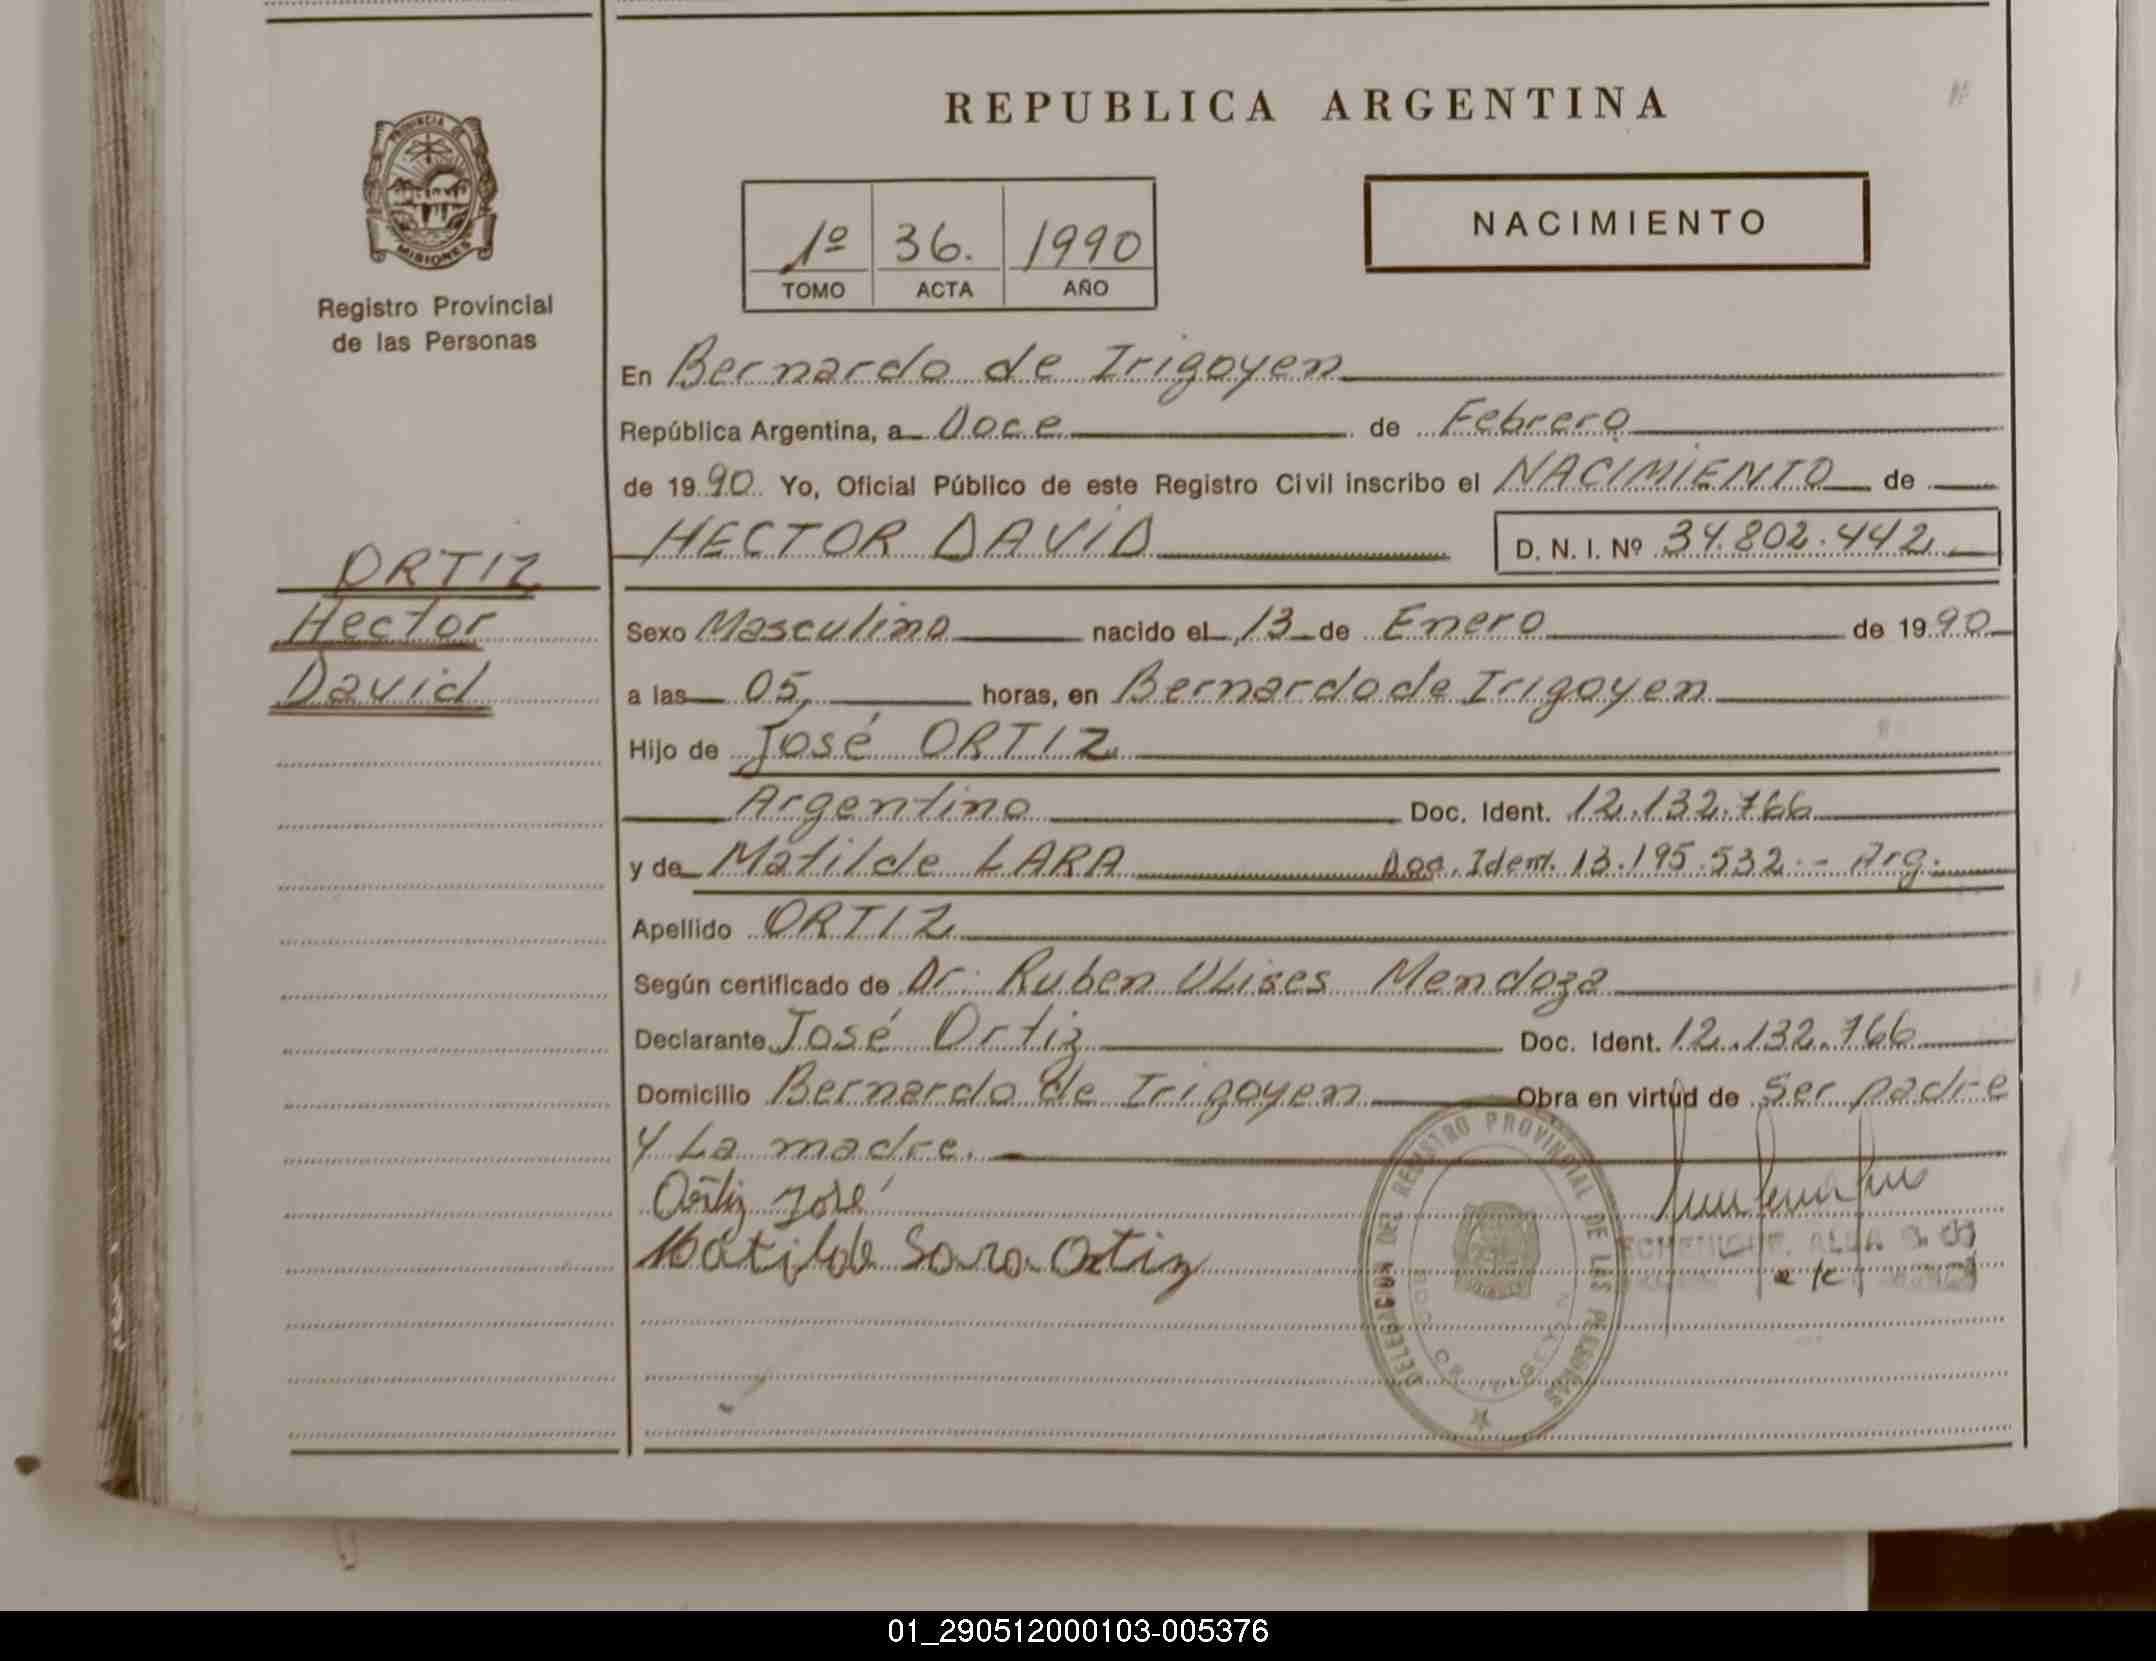 REPUBLICA ARGENTINA
PROVINCIA DE
MISIONES
Registro Provincial
de las Personas
1º 36. 1990
TOMO ACTA AÑO
NACIMIENTO
En Bernardo de Irigoyen
República Argentina, a Doce de Febrero
de 1990. Yo, Oficial Público de este Registro Civil inscribo el NACIMIENTO de
HECTOR DAVID D. N. I. Nº 34.802.442
ORTIZ
Hector
David
Sexo Masculino nacido el 13 de Enero de 1990
a las 05, horas, en Bernardo de Irigoyen
Hijo de José ORTIZ
Argentino Doc. Ident. 12.132.766
y de Matilde LARA Doc. Ident. 13.195.532.- Arg.
Apellido ORTIZ
Según certificado de Dr. Ruben Ulises Mendoza
Declarante José Ortiz Doc. Ident. 12.132.766
Domicilio Bernardo de Irigoyen Obra en virtud de Ser padre
y La madre.
Ortiz José
Matilde Ortiz
DELEGACION DEL REGISTRO PROVINCIAL DE LAS PERSONAS
01_290512000103-005376